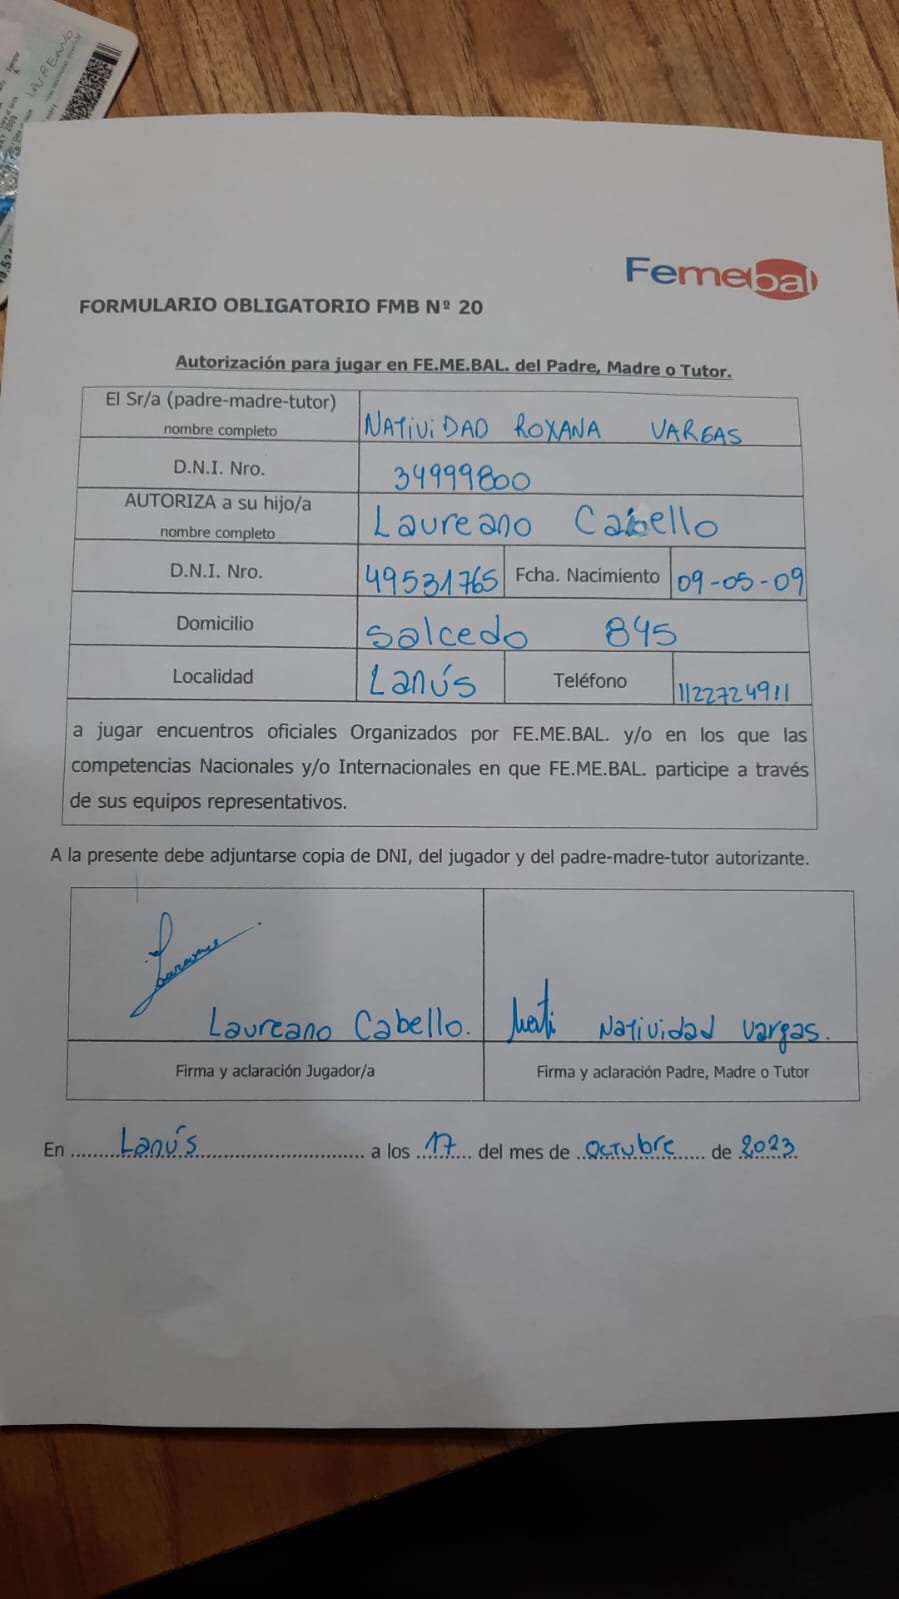 LAUREANO
Femebal
FORMULARIO OBLIGATORIO FMB Nº 20
Autorización para jugar en FE.ME.BAL. del Padre, Madre o Tutor.
El Sr/a (padre-madre-tutor)
nombre completo
NATIVIDAD ROXANA VARGAS
D.N.I. Nro.
34999800
AUTORIZA a su hijo/a
nombre completo
Laureano Cabello
D.N.I. Nro.
49531765
Fcha. Nacimiento
09-05-09
Domicilio
Salcedo 845
Localidad
Lanús
Teléfono
1122724911
a jugar encuentros oficiales Organizados por FE.ME.BAL. y/o en los que las
competencias Nacionales y/o Internacionales en que FE.ME.BAL. participe a través
de sus equipos representativos.
A la presente debe adjuntarse copia de DNI, del jugador y del padre-madre-tutor autorizante.
Laureano Cabello.
Nati Natividad Vargas.
Firma y aclaración Jugador/a
Firma y aclaración Padre, Madre o Tutor
En Lanús a los 17 del mes de octubre de 2023